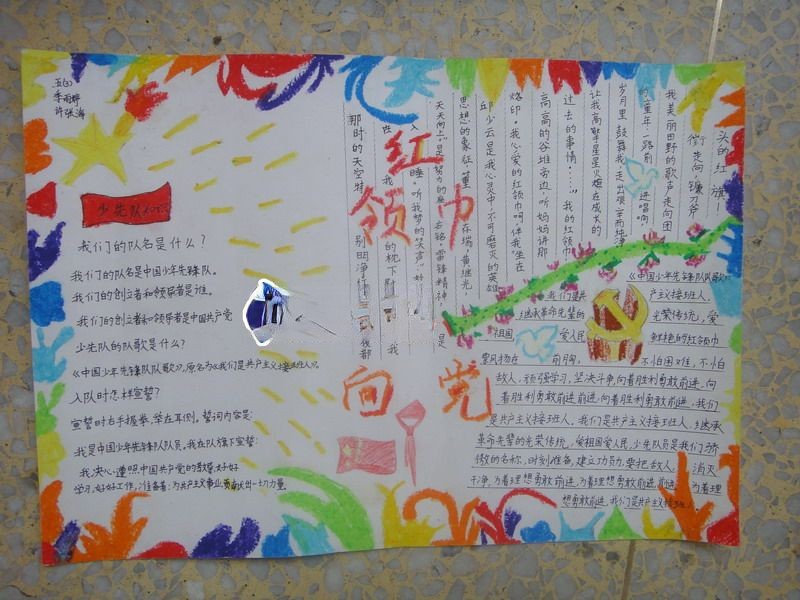 五(3)
李雨婷
许张海
少先队知识
我们的队名是什么?
我们的队名是中国少年先锋队。
我们的创立者和领导者是谁。
我们的创立者和领导者是中国共产党
少先队的队歌是什么?
《中国少年先锋队队歌》,原名为《我们是共产主义接班人》。
入队时怎样宣誓?
宣誓时右手握拳,举在耳侧。誓词内容是:
我是中国少年先锋队队员,我在队旗下宣誓:
我决心遵照中国共产党的教导,好好
学习,好好工作,准备着:为共产主义事业,贡献出一切力量
红领巾
向党
头的红旗!
街走向,镰刀斧
我美丽田野的歌声走向团
的童年一路前进唱响,
岁月里鼓舞我走出艰辛而纯净
让我高擎手星星火炬在成长的
过去的事情……”我的红领巾
高高的谷堆旁边,听妈妈讲那
烙印。我心爱的红领巾呵伴我“坐在
邱少云是我心灵中不可磨灭的英雄
思想的象征,董存瑞,黄继光,
天天向上”是努力的座右铭,雷锋精神是
入睡。听我梦的笑声”好
的枕下
那时的天空特别明净
《中国少年先锋队队歌》
我们是共产主义接班人,
继承革命先辈的光荣传统,爱
祖国爱人民鲜艳的红领巾
飘扬在前胸,不怕困难,不怕
敌人,顽强学习,坚决斗争向着胜利勇敢前进,向
着胜利勇敢前进前进,向着胜利勇敢前进,我们
是共产主义接班人。我们是共产主义接班人,继承
革命先辈的光荣传统,爱祖国爱人民,少先队员是我们骄
傲的名称,时刻准备,建立功劳,要把敌人消灭
干净,为着理想勇敢前进,为着理想勇敢前进前进,为着理
想勇敢前进,我们是共产主义接班人。